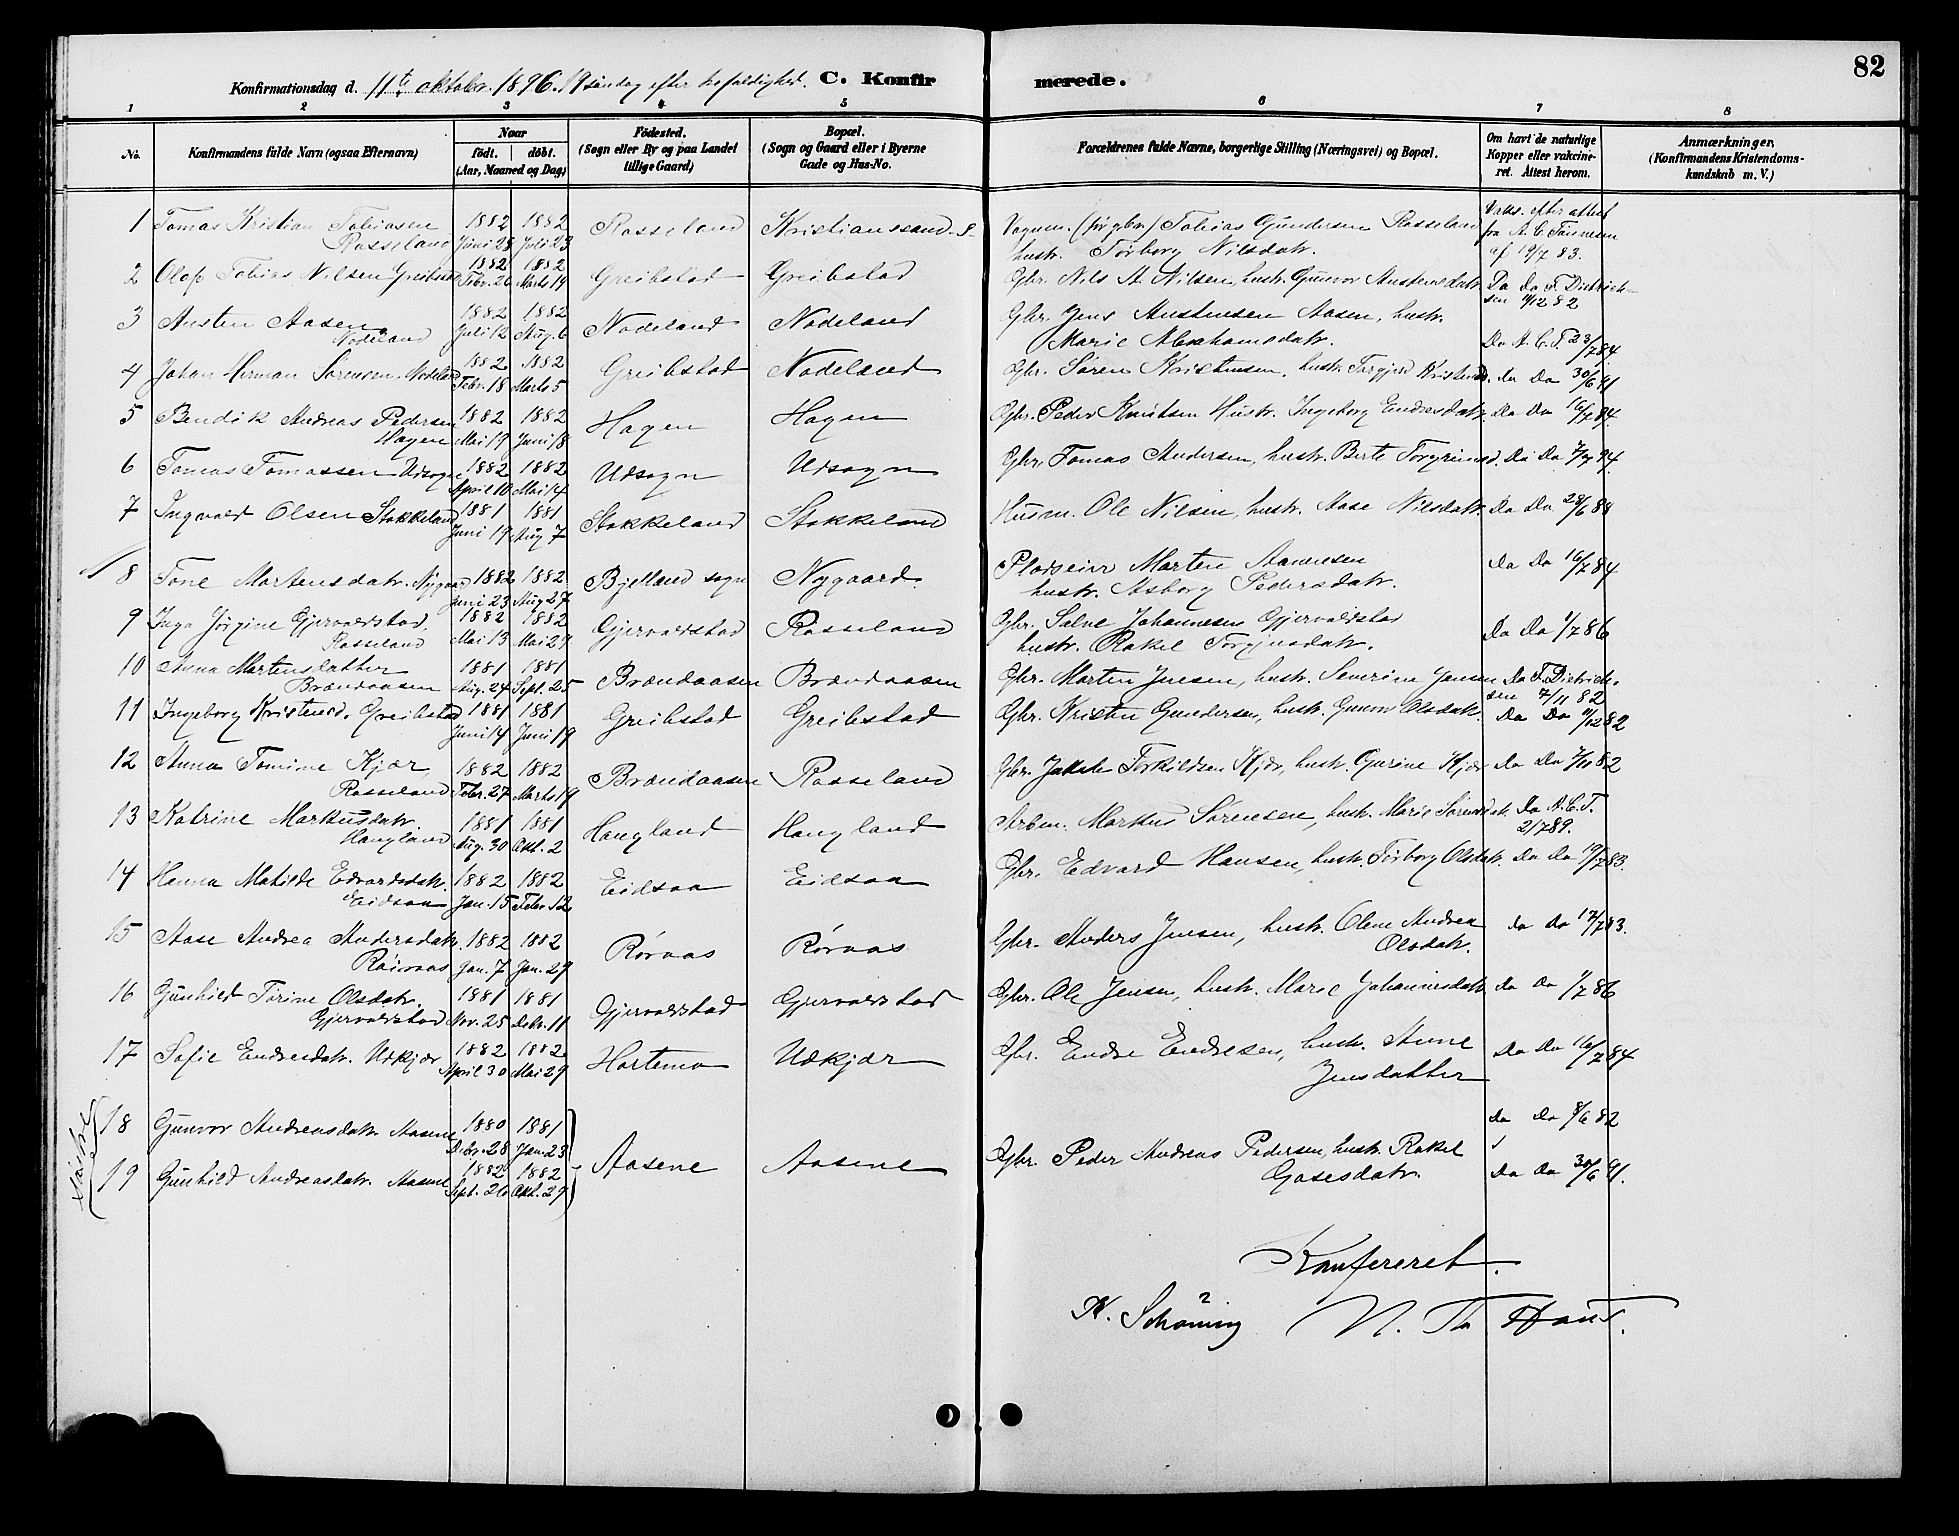 82
Konfirmationsdag d. 11te oktober 1896. 19 söndag efter trefoldighed. C. Konfirmerede.
1 2 3 4 5 6 7 8
No. Konfirmandens fulde Navn (ogsaa Efternavn) Naar födt. döbt. (Aar, Maaned og Dag) Födested. (Sogn eller By og paa Landet tillige Gaard) Bopæl. (Sogn og Gaard eller i Byerne Gade og Hus-No. Forældrenes fulde Navne, borgerlige Stilling (Næringsvei) og Bopæl. Om havt de naturlige Kopper eller vakcineret. Attest herom. Anmærkninger, (Konfirmandens Kristendomskundskab m. V.)
1 Tomas Kristian Tobiasen Rosseland 1882 Juni 28 1882 Juli 23 Rosseland Kristianssand S. Vognm. (før gbr.) Tobias Gundersen Rosseland hustr. Torborg Nilsdatr. Vaks. efter attest fra A. C. Tønnesen af 19/7 83.
2 Olof Tobias Nilsen Greibstad 1882 Febr. 26 1882 Marts 19 Greibstad Greibstad Gbr. Nils A. Nilsen, hustr. Gunvor Austensdatr. Do Do F. Dietrichsen 11/12 82
3 Austen Aasen Nodeland 1882 Juli 12 1882 Aug. 6 Nodeland Nodeland Gbr. Jens Austensen Aasen, hustr. Marie Abrahamsdatr. Do A. C. T. 23/7 84
4 Johan Herman Sørensen Nodeland 1882 Febr. 18 1882 Marts 5 Greibstad Nodeland Gbr. Søren Kristensen, hustr. Torgjerd Kristensd. Do Do 30/6 91
5 Bendik Andreas Pedersen Hagen 1882 Mai 19 1882 Juni 18 Hagen Hagen Gbr. Peder Knutsen Hustr. Ingeborg Endresdatr. Do Do 16/7 84.
6 Tomas Tomassen Udsogn 1882 April 10 1882 Mai 14 Udsogn Udsogn Gbr. Tomas Andersen, hustr. Berte Torgrimsd. Do Do
7 Ingvald Olsen Stokkeland 1881 Juni 19 1881 Aug 7 Stokkeland Stokkeland Husm. Ole Nilsen, hustr. Aase Nilsdatr. Do Do
8 Tone Martensdatr. Nygaard 1882 Juni 23 1882 Aug 27 Bjelland sogn Nygaard. Pladseier Marten Aanensen hustr. Asborg Pedersdatr. Do Do 16/7 84
9 Inga Jørgine Gjervoldstad. Rosseland 1882 Mai 13 1882 Mai 29 Gjervoldstad Rosseland Gbr. Salve Johannesen Gjervoldstad hustr. Rakel Torgjusdatr. Do Do 1/7 86
10 Anna Martensdatter Brændaasen 1881 Aug. 24 1881 Sept. 25 Brændaasen Brændaasen Gbr. Marten Jensen, hustr. Severine Jensen Do F. Dietrichsen 7/11 82
11 Ingeborg Kristensd. Greibstad 1881 Juni 4 1881 Juni 19 Greibstad Greibstad Gbr. Kristen Gundersen, hustr. Gunvor Olsdatr. Do Do 11/12 82
12 Anna Tomine Kjær, Rosseland 1882 Febr. 27 1882 Marts 19 Brændaasen Rosseland Gbr. Jakob Torkildsen Kjær, hustr. Gurine Kjær Do Do 7/11 82
13 Katrine Markusdatr. Haugland 1881 Aug. 30 1881 Okt. 2 Haugland Haugland Arbm. Markus Sørensen, hustr. Marie Sørensdatr. Do A. C. T. 2/7 89.
14 Hanna Matilde Edvardsdatr. Eidsaa 1882 Jan. 15 1882 Febr. 12 Eidsaa Eidsaa Gbr. Edvard Hansen, hustr. Torborg Olsdatr. Do Do 19/7 83.
15 Aase Andrea Andersdatr. Røiraas 1882 Jan. 7 1882 Jan. 29 Røraas Røraas Gbr. Anders Jensen, hustr. Olene Andrea Olsdatr. Do Do 17/7 83.
16 Gunhild Torine Olsdatr. Gjervoldstad 1881 Nov. 25 1881 Debr. 11 Gjervoldstad Gjervoldstad Gbr. Ole Jensen, hustr. Marie Johannesdatr. Do Do 1/7 86
17 Sofie Endresdatr. Udkjær 1882 April 30 1882 Mai 29 Hortemo Udkjær Gbr. Endre Endresen, hustr. Anne Jensdatter Do Do 16/7 84
18 Gunvor Andreasdatr. Aasene 1880 Debr. 28 1881 Jan. 23 Do Do 8/6 82
Aasene Aasene Gbr. Peder Andreas Pedersen, hustr. Rakel Gasesdatr.
19 Gunhild Andreasdatr. Aasene 1882 Sept. 26 1882 Okt. 29 Do Do 30/6 91.
Konfereret.
N. Schöning N. Th.